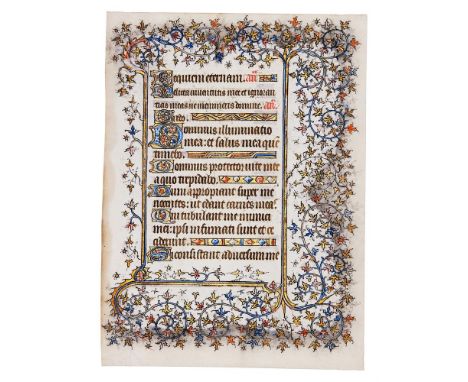 Requiem eternam. añ
Delicta iuventutis mee et ignoran
tias meas ne memineris domine. añ
Dominus illuminatio
mea: et salus mea quē
timebo.
Dominus protector vite mee
a quo trepidabo.
Dum appropiant super me
nocentes: ut edant carnes meas
Qui tribulant me inimici
mei: ipsi infirmati sunt et ce
ciderunt.
Si consistant adversum me